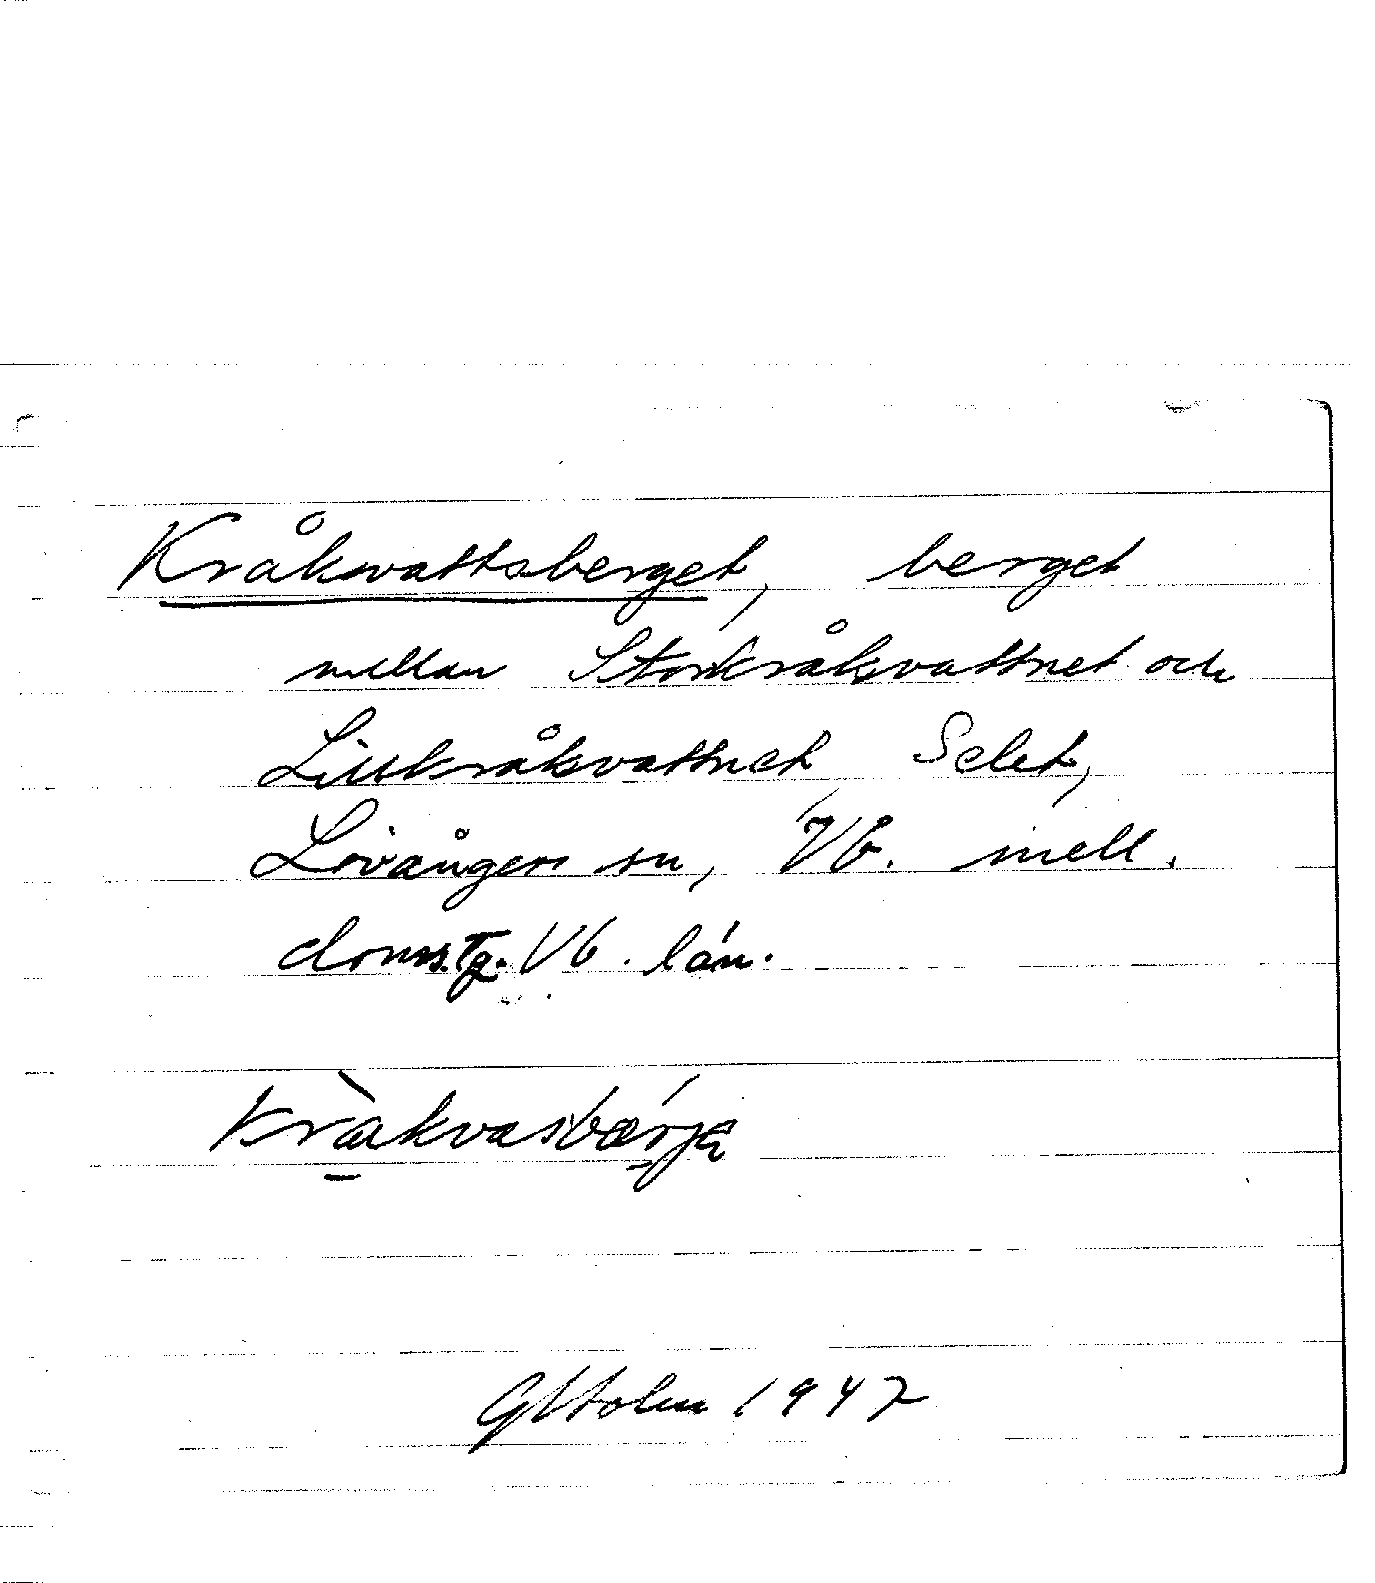 Kråkvattsberget, berget
mellan Storkråkvattnet och
Lillkråkvattnet Selet,
Lövångers sn, Vb. mell.
doms.Tg. Vb. län.
Kràkvasbárjɛ
GHolm 1947